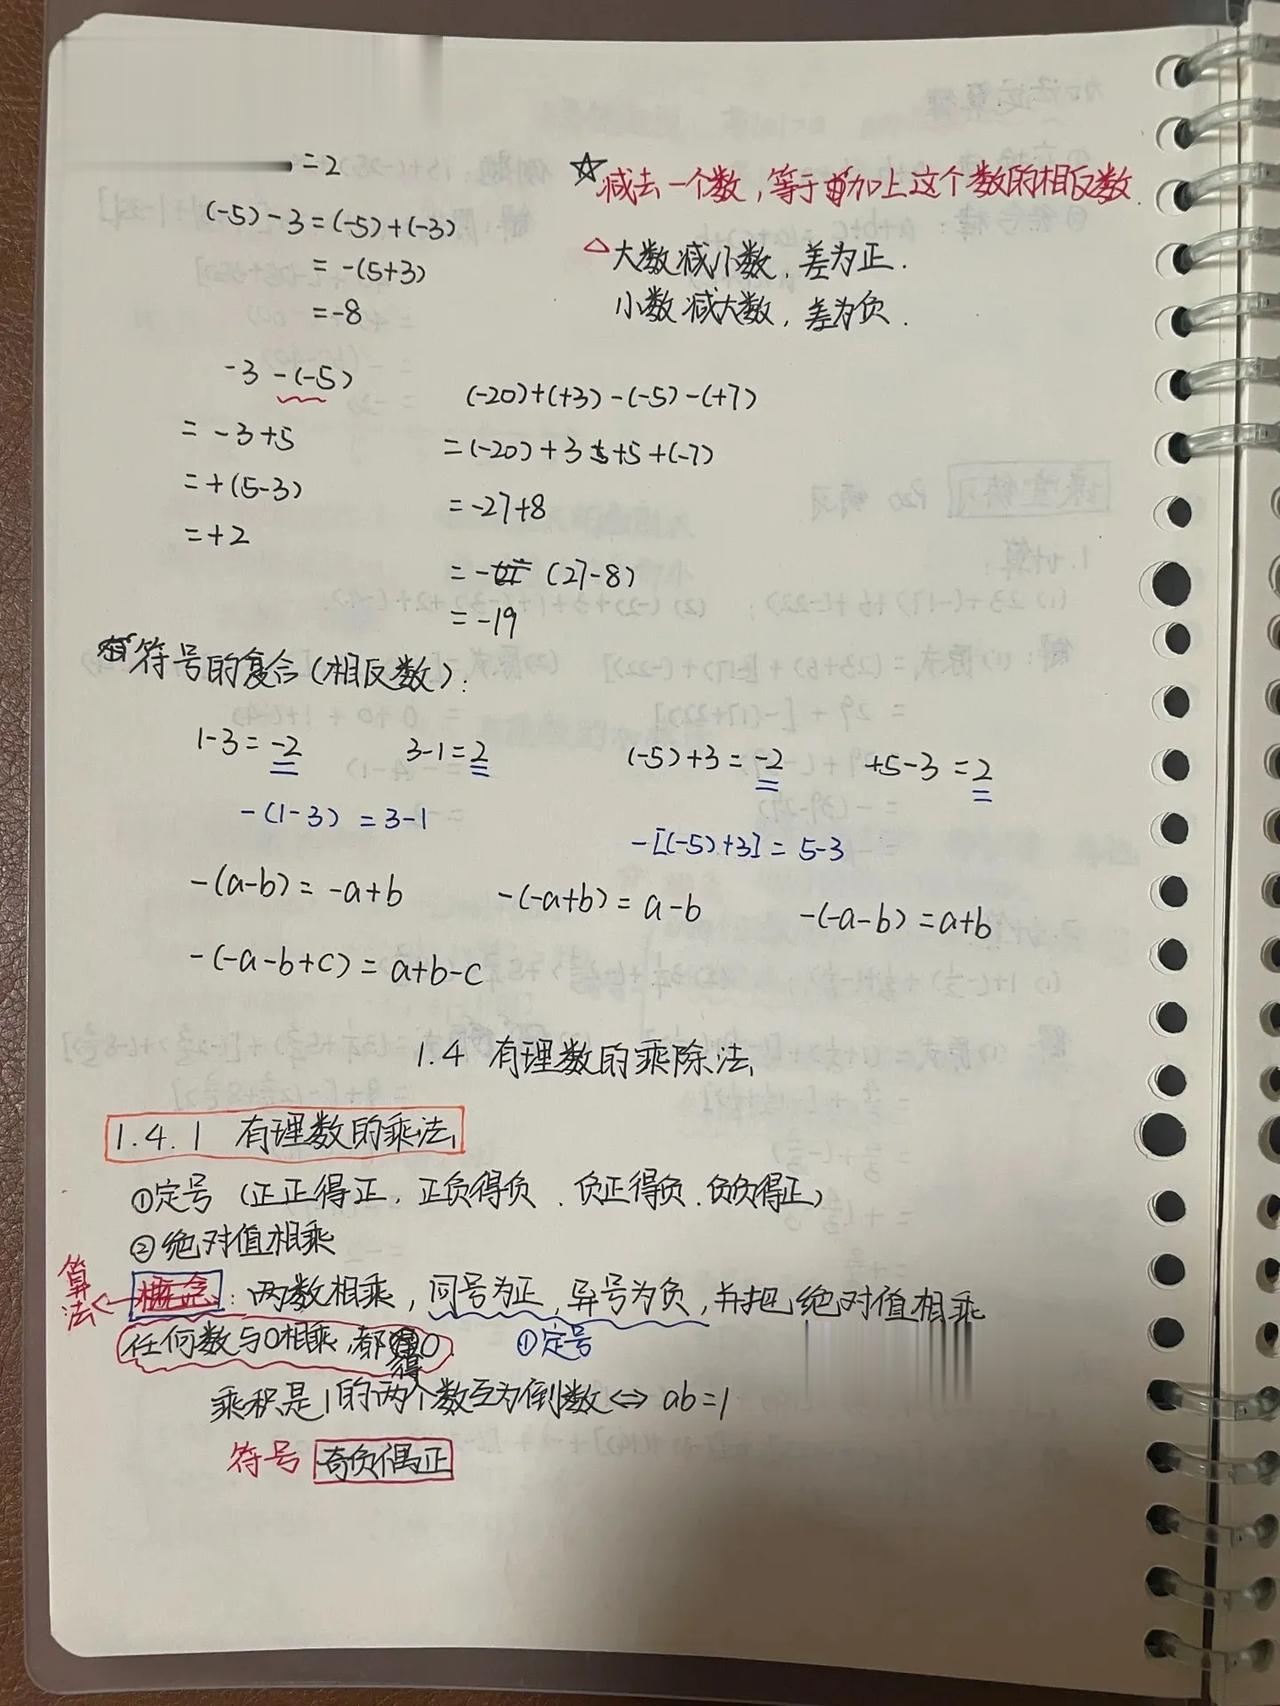 =2
☆减去一个数,等于加上这个数的相反数.
(-5)-3=(-5)+(-3)
=-(5+3)
=-8
△大数减小数,差为正.
小数减大数,差为负.
-3-(-5)
=-3+5
=+(5-3)
=+2
(-20)+(+3)-(-5)-(+7)
=(-20)+3+5+(-7)
=-27+8
=-(27-8)
=-19
符号的复合(相反数):
1-3=-2 3-1=2 (-5)+3=-2 +5-3=2
-(1-3)=3-1 -[(-5)+3]=5-3
-(a-b)=-a+b -(-a+b)=a-b -(-a-b)=a+b
-(-a-b+c)=a+b-c
1.4 有理数的乘除法
1.4.1 有理数的乘法
①定号(正正得正.正负得负.负正得负.负负得正)
②绝对值相乘
算法←概念:两数相乘,同号为正,异号为负,并把绝对值相乘
任何数与0相乘,都得0. ①定号
乘积是1的两个数互为倒数⇔ab=1
符号 奇负偶正